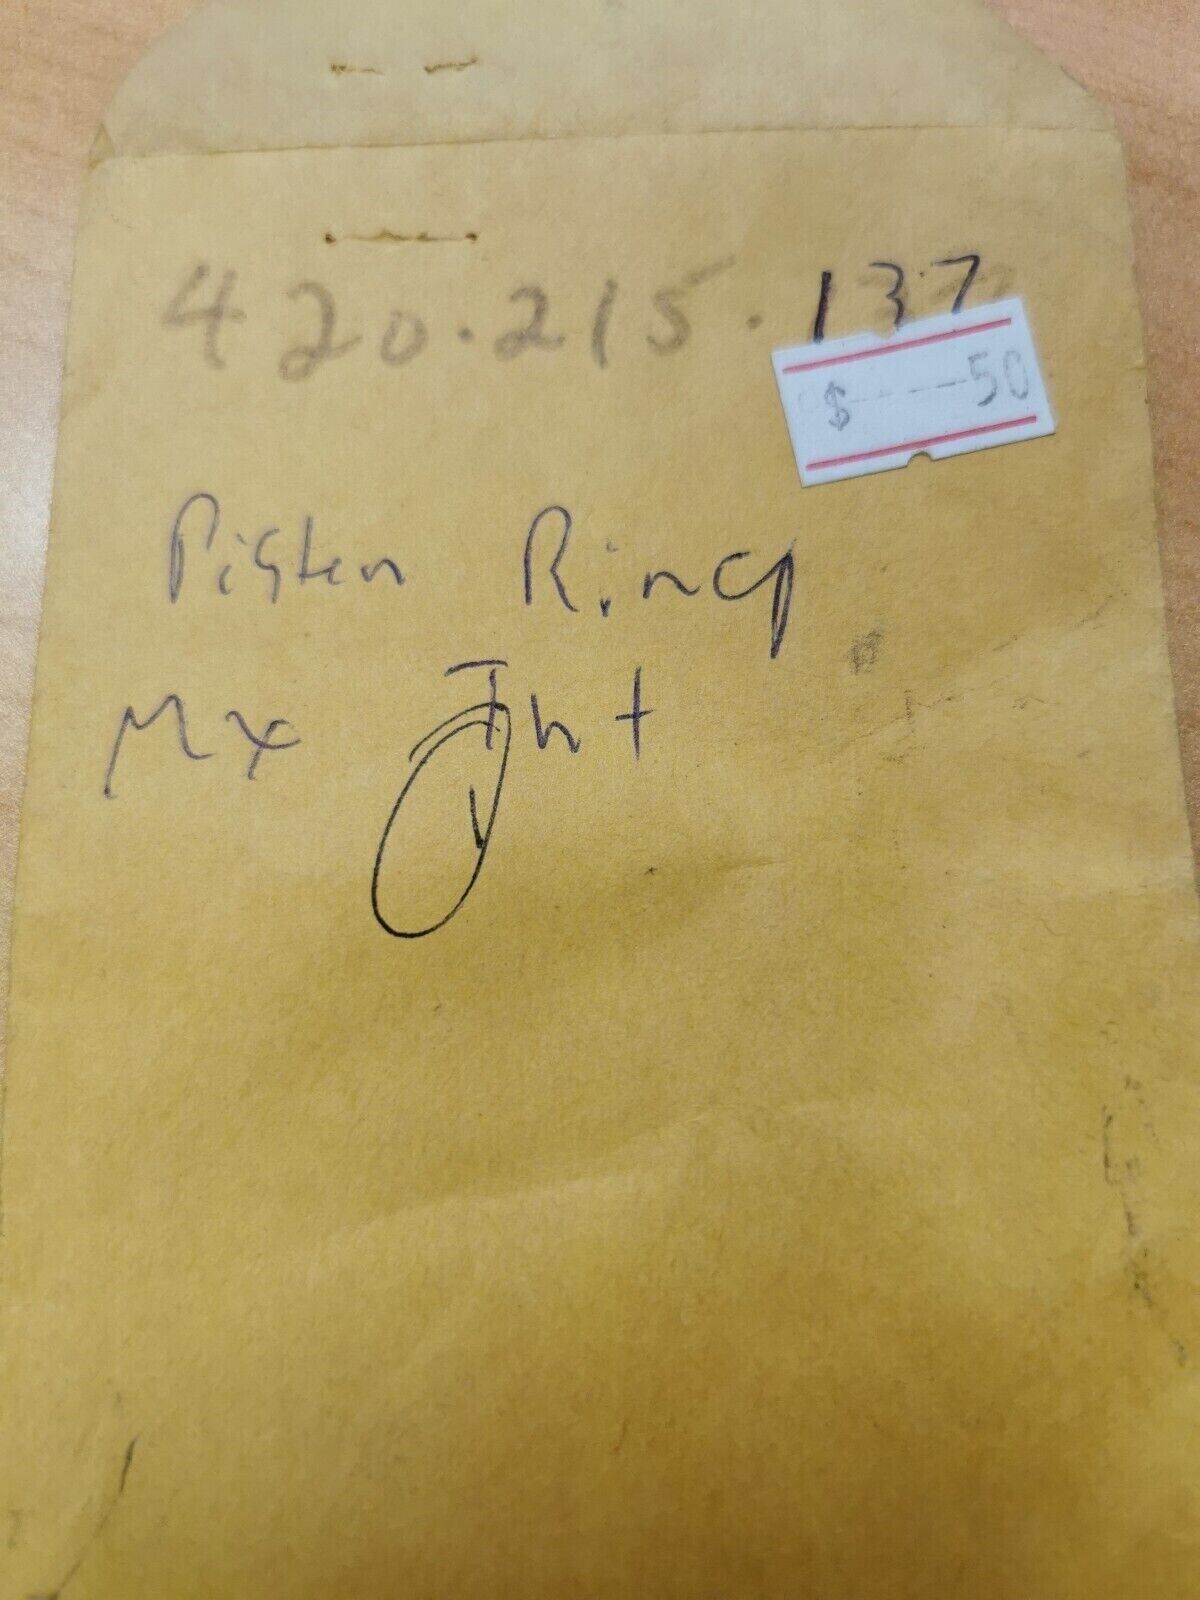 420.215.137
$ ---- 50
Piston Ring
Mx Int
1